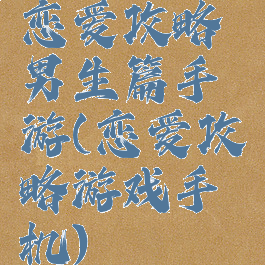 恋爱攻略
男生篇手
游(恋爱攻
略游戏手
机)